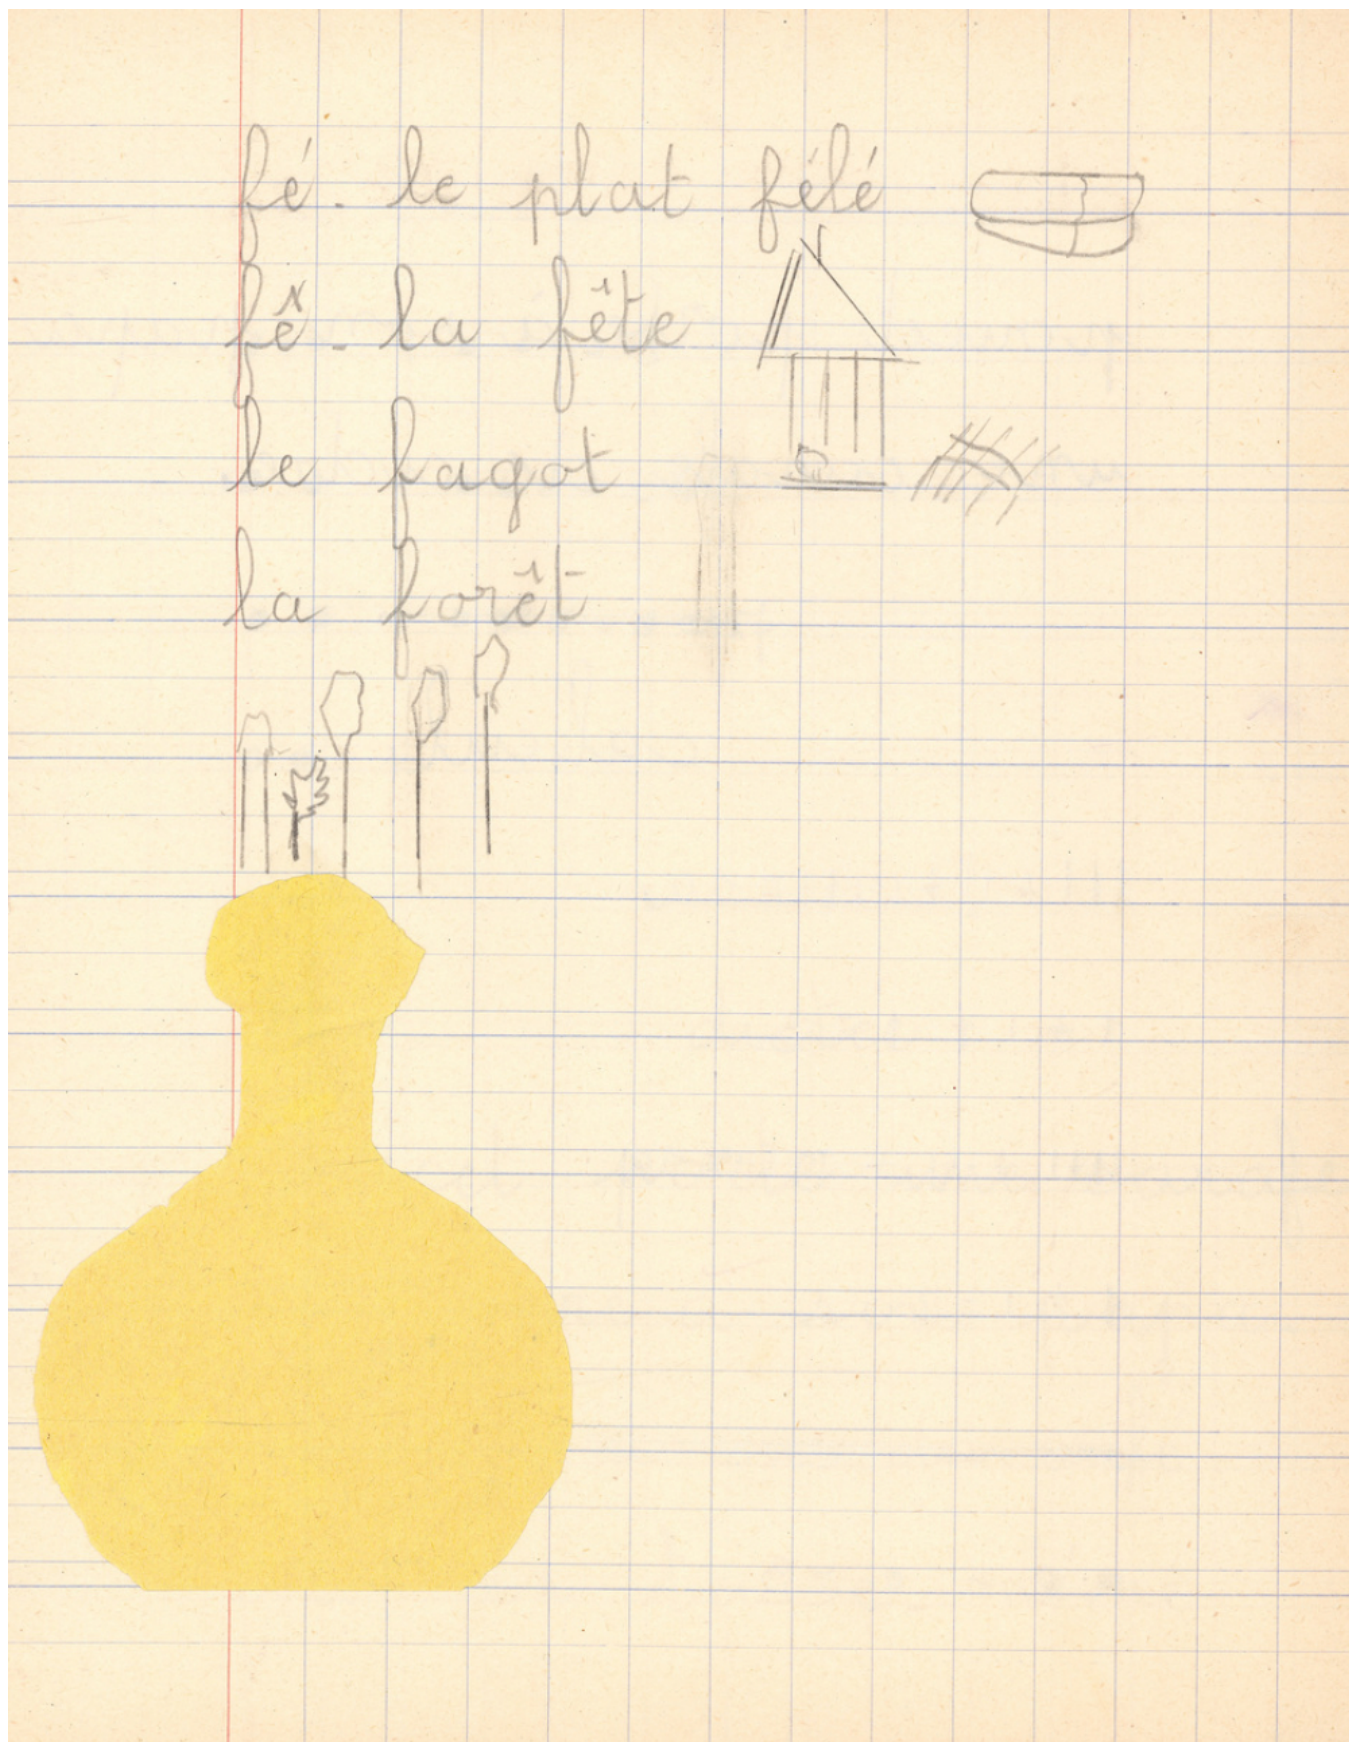 fé. le plat félé
fê. la fête
le fagot
la forêt